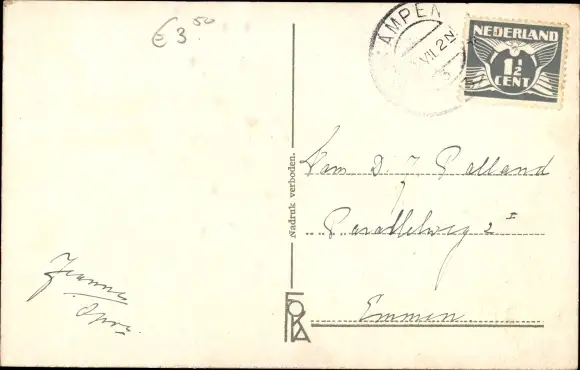 € 3.50
AMPEN
VII.2
NEDERLAND
1½
CENT
Nadruk verboden.
Fam D. J. Palland
Parallelweg 2 I
Emmen.
Jeanne
FOKA